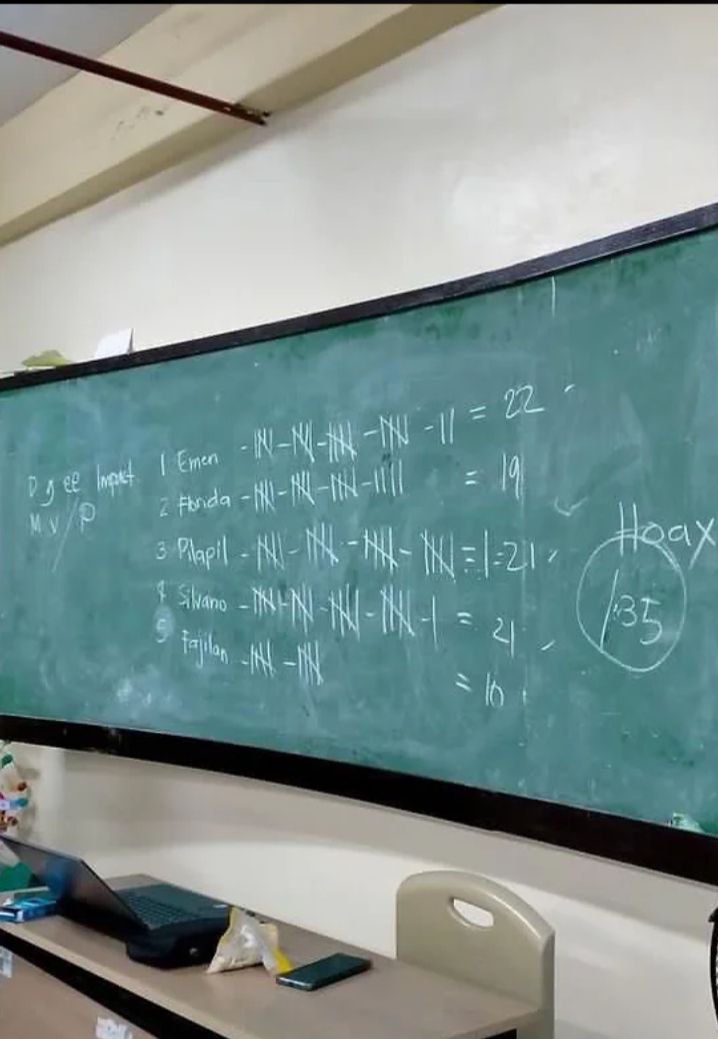 Impact
M.V/P
1 Emen - 𝍸 - 𝍸 - 𝍸 - 𝍸 - || = 22
2 Florida - 𝍸 - 𝍸 - 𝍸 - |||| = 19
3 Pilapil - 𝍸 - 𝍸 - 𝍸 - 𝍸 = | = 21
4 Silvano - 𝍸 - 𝍸 - 𝍸 - 𝍸 - | = 21
5 Fajilan - 𝍸 - 𝍸 = 10
Hoax
/35